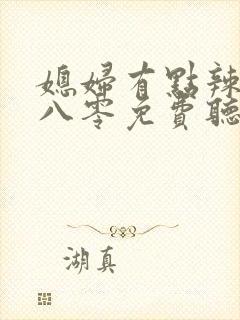 媳婦有點辣
八零免費聽
湖真